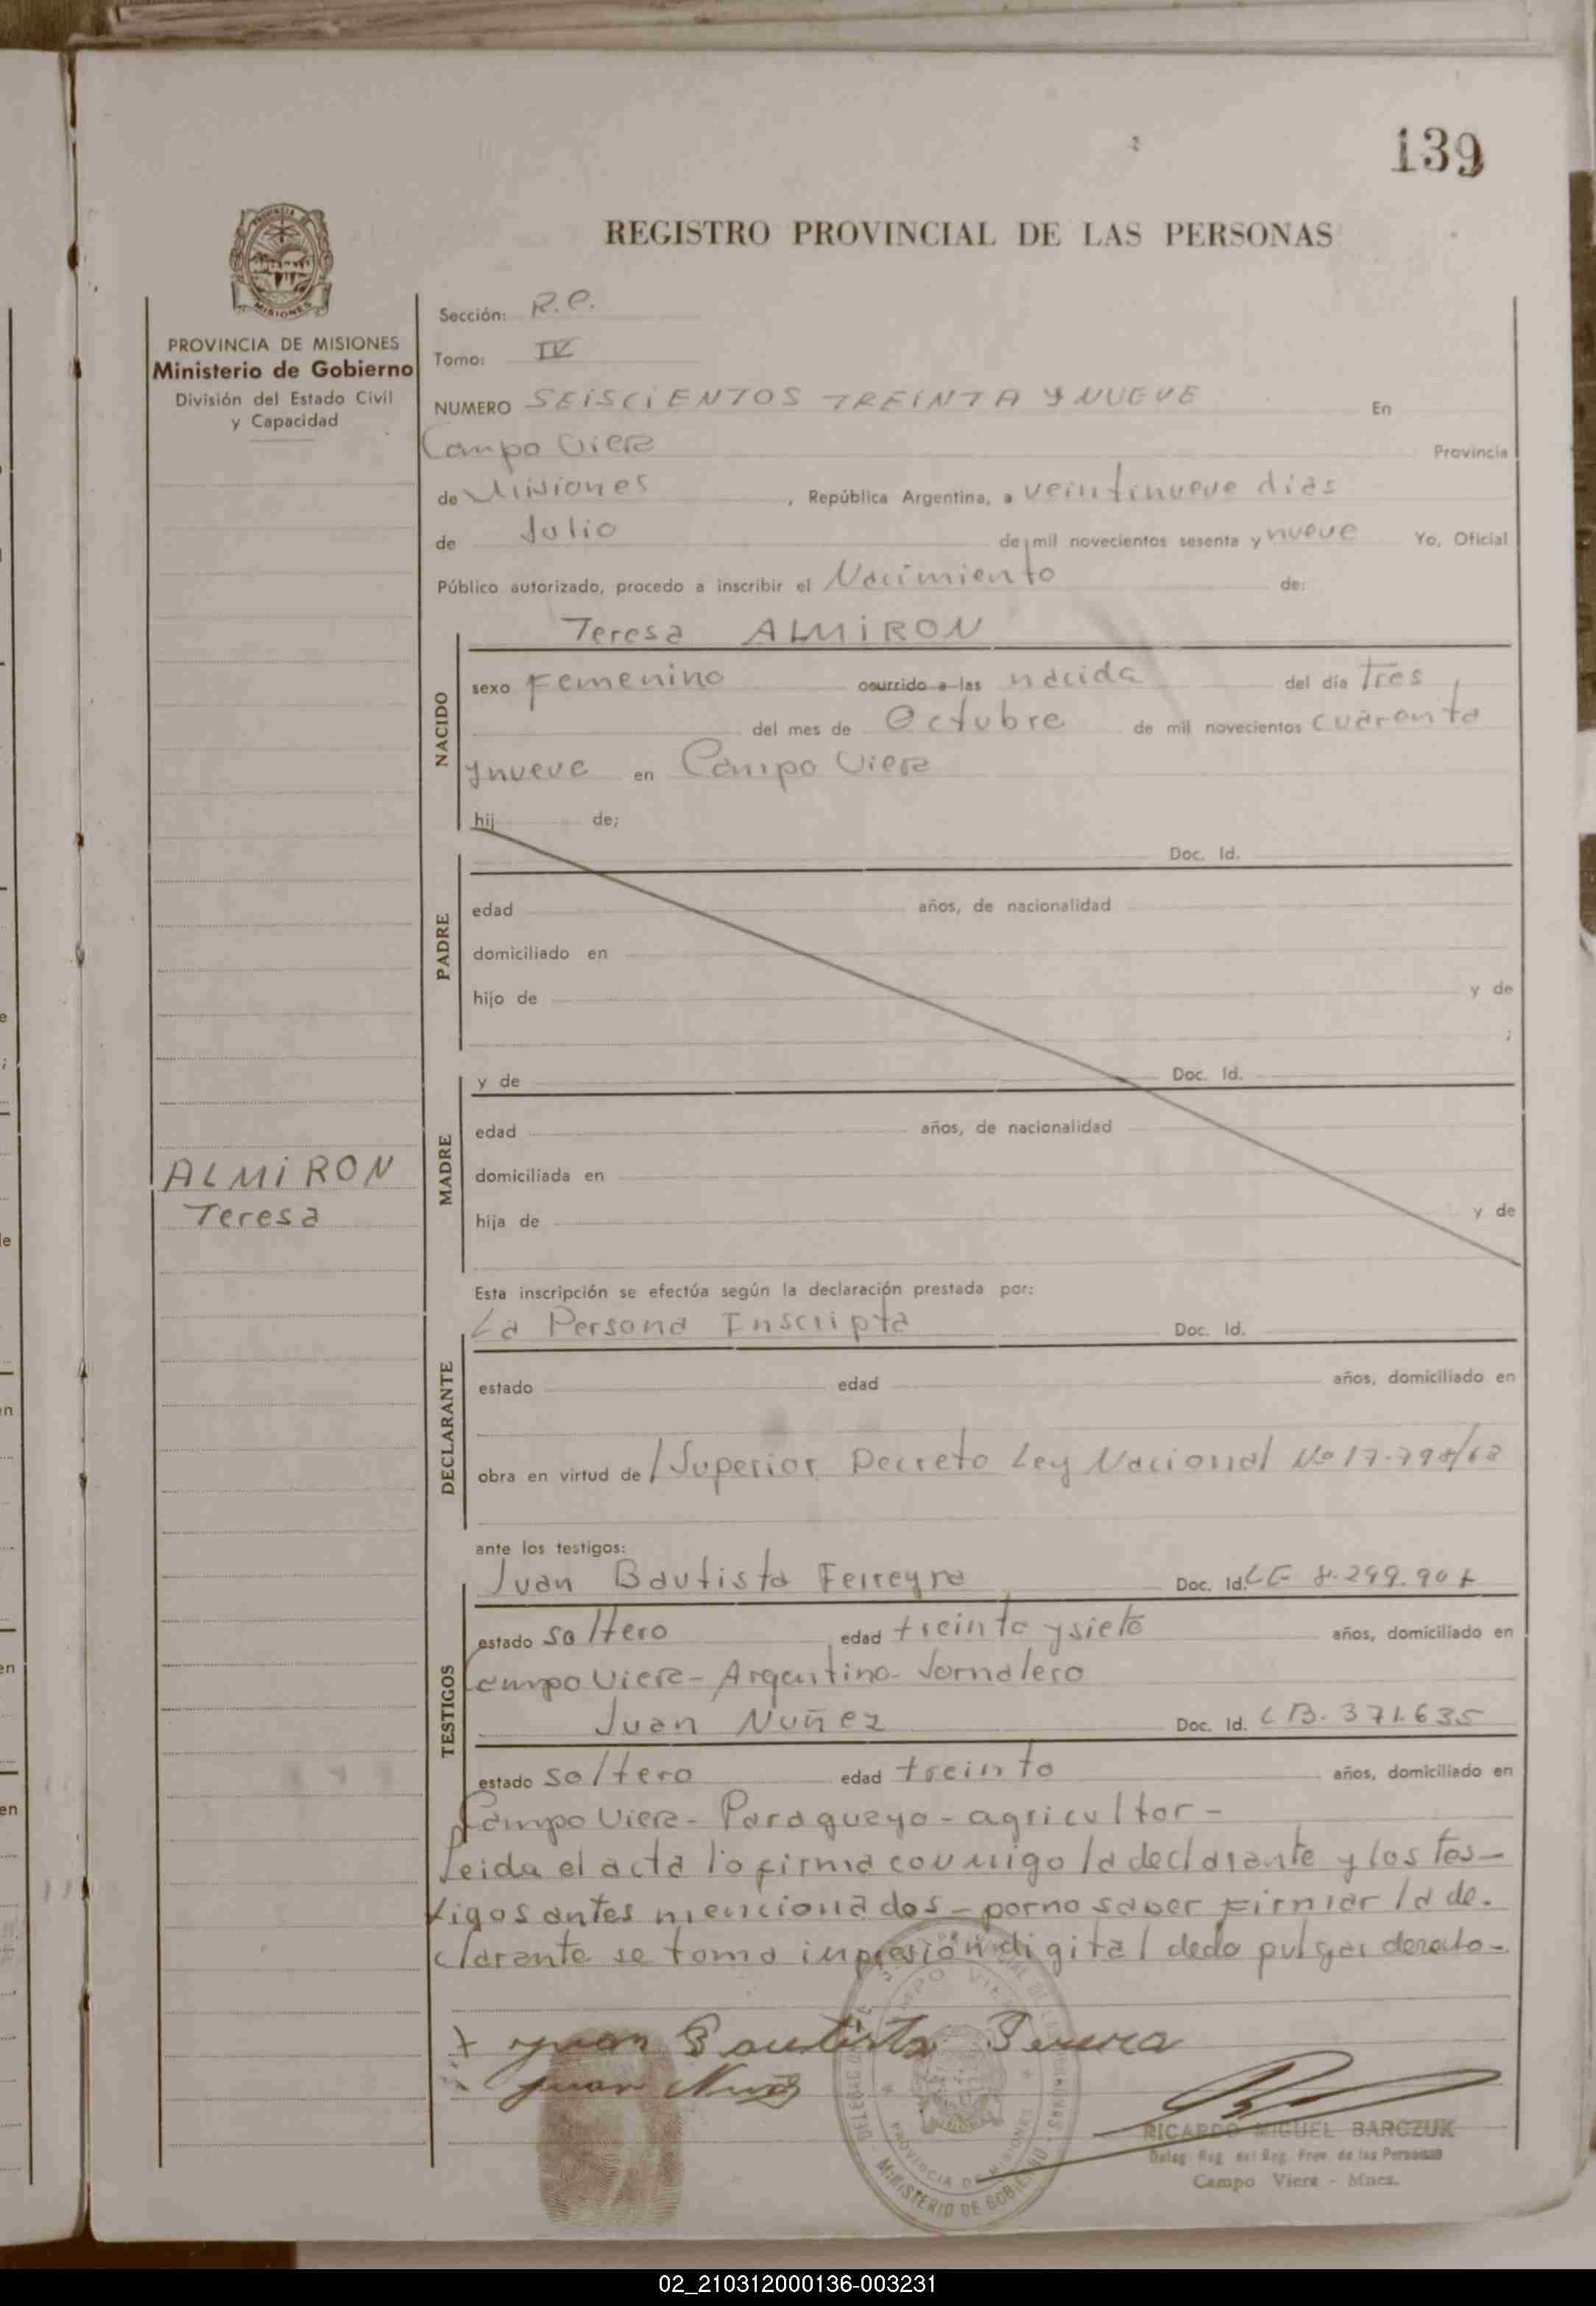 139
REGISTRO PROVINCIAL DE LAS PERSONAS
MISIONES
PROVINCIA DE MISIONES
Ministerio de Gobierno
División del Estado Civil
y Capacidad
Sección: R.P.
Tomo: IV
NUMERO SEISCIENTOS TREINTA Y NUEVE En
Campo Viera Provincia
de Misiones, República Argentina, a veintinueve dias
de Julio de mil novecientos sesenta y nueve Yo, Oficial
Público autorizado, procedo a inscribir el Nacimiento de:
Teresa ALMIRON
NACIDO
sexo Femenino ocurrido a las nacida del día tres
del mes de Octubre de mil novecientos cuarenta
y nueve en Campo Viera
hij de;
PADRE
Doc. Id.
edad años, de nacionalidad
domiciliado en
hijo de y de
;
MADRE
y de Doc. Id.
edad años, de nacionalidad
domiciliada en
hija de y de
ALMIRON
Teresa
Esta inscripción se efectúa según la declaración prestada por:
DECLARANTE
La Persona Inscripta Doc. Id.
estado edad años, domiciliado en
obra en virtud de / Superior Decreto Ley Nacional No
ante los testigos:
TESTIGOS
Juan Bautista Ferreyra Doc. Id.
estado soltero edad treinta y siete años, domiciliado en
Campo Viera - Argentino - Jornalero
Juan Nuñez Doc. Id. 371.635
estado soltero edad treinta años, domiciliado en
Campo Viera - Paraguayo - agricultor -
Leida el acta la firma conmigo la declarante y los tes-
tigos antes mencionados - por no saber firmar la de.
clarante se toma impresión digital dedo pulgar derecho -
Juan Bautista
Juan
PROVINCIA DE MISIONES
MINISTERIO DE GOBIERNO
RICARDO MIGUEL BARCZUK
Deleg. Reg. del Reg. Prov. de las Personas
Campo Viera - Mnes.
02_210312000136-003231